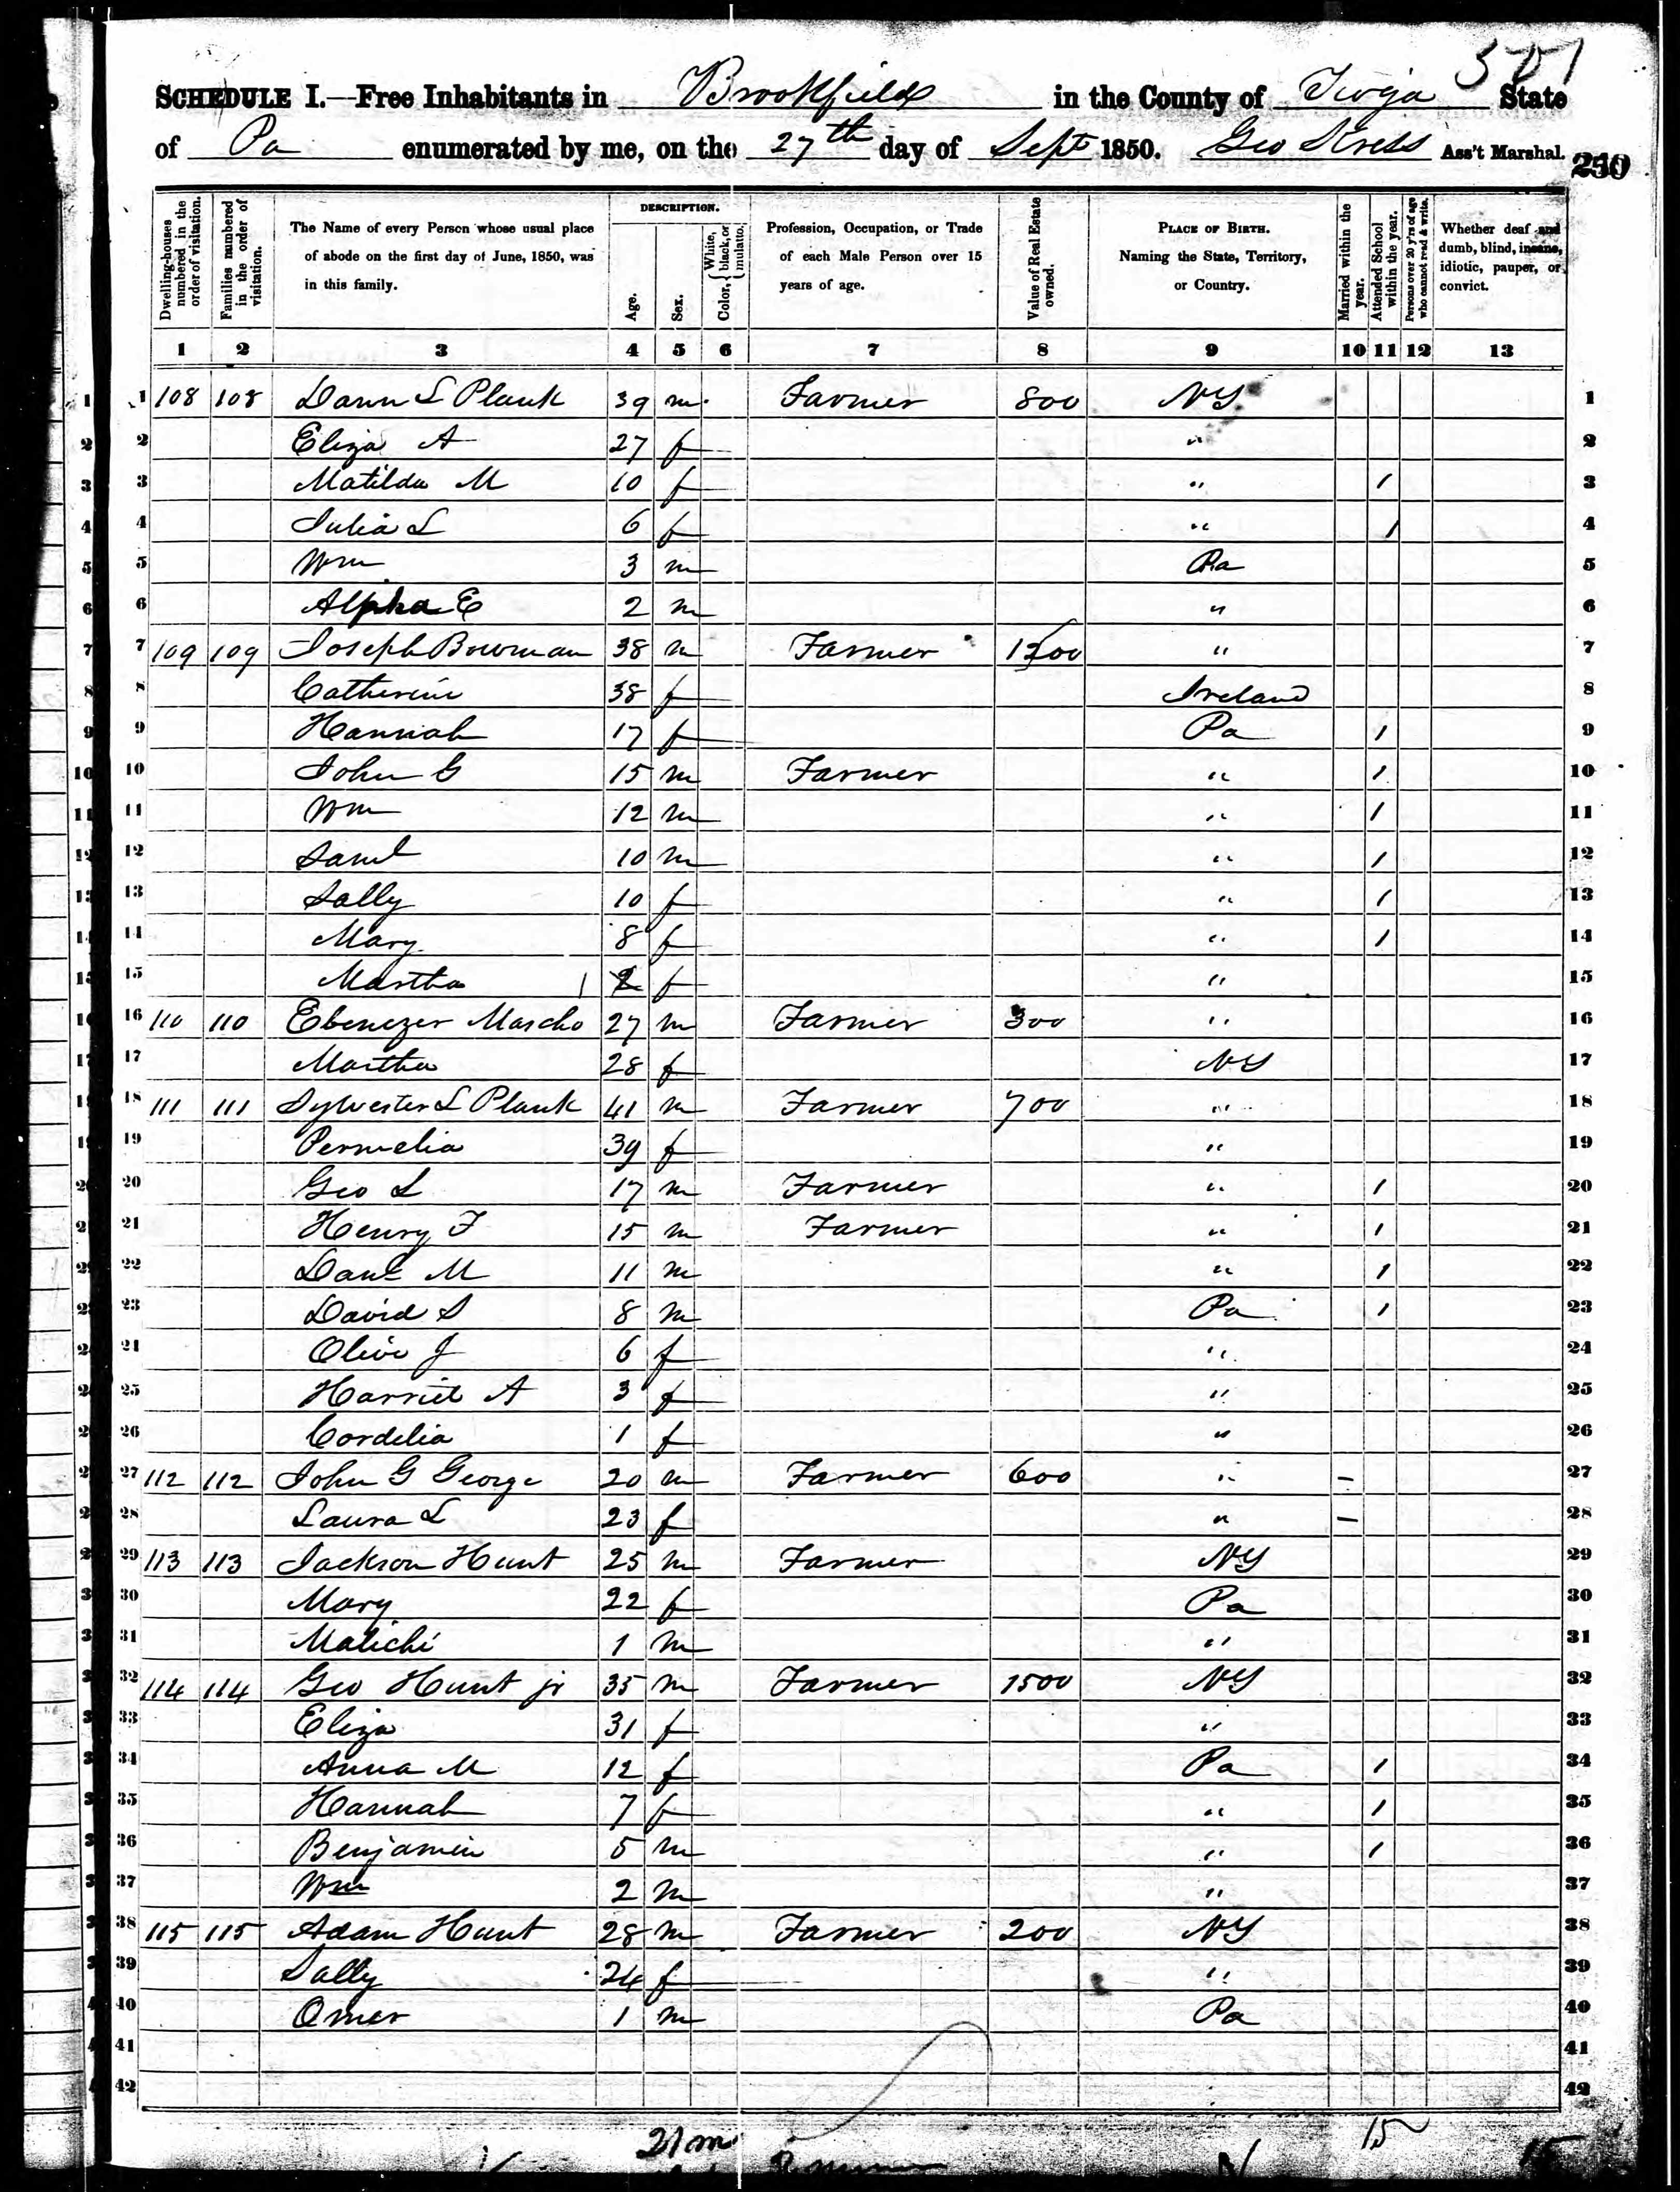 501
SCHEDULE I.—Free Inhabitants in Brookfield in the County of Tioga State
of Pa enumerated by me, on the 27th day of Sept 1850. Geo Kress Ass't Marshal. 250
Dwelling-houses numbered in the order of visitation.
Families numbered in the order of visitation.
The Name of every Person whose usual place of abode on the first day of June, 1850, was in this family.
DESCRIPTION.
Age.
Sex.
Color, { White, black, or mulatto.
Profession, Occupation, or Trade of each Male Person over 15 years of age.
Value of Real Estate owned.
PLACE OF BIRTH. Naming the State, Territory, or Country.
Married within the year.
Attended School within the year.
Persons over 20 y'rs of age who cannot read & write.
Whether deaf and dumb, blind, insane, idiotic, pauper, or convict.
1 2 3 4 5 6 7 8 9 10 11 12 13
1 108 108 Dann L Plank 39 m Farmer 800 NY 1
2 Eliza A 27 f " 2
3 Matilda M 10 f " / 3
4 Julia L 6 f " / 4
5 Wm 3 m Pa 5
6 Alpha E 2 m " 6
7 109 109 Joseph Bowman 38 m Farmer 1200 " 7
8 Catherine 38 f Ireland 8
9 Hannah 17 f Pa / 9
10 John G 15 m Farmer " / 10
11 Wm 12 m " / 11
12 Saml 10 m " / 12
13 Sally 10 f " / 13
14 Mary 8 f " / 14
15 Martha 1 f " 15
16 110 110 Ebenezer Mascho 27 m Farmer 300 " 16
17 Martha 28 f NY 17
18 111 111 Sylvester L Plank 41 m Farmer 700 " 18
19 Permelia 39 f " 19
20 Geo L 17 m Farmer " / 20
21 Henry F 15 m Farmer " / 21
22 Danl M 11 m " / 22
23 David S 8 m Pa / 23
24 Olive J 6 f " 24
25 Harriet A 3 f " 25
26 Cordelia 1 f " 26
27 112 112 John G George 20 m Farmer 600 " – 27
28 Laura L 23 f " – 28
29 113 113 Jackson Hunt 25 m Farmer NY 29
30 Mary 22 f Pa 30
31 Malichi 1 m " 31
32 114 114 Geo Hunt jr 35 m Farmer 1500 NY 32
33 Eliza 31 f " 33
34 Anna M 12 f Pa / 34
35 Hannah 7 f " / 35
36 Benjamin 5 m " / 36
37 Wm 2 m " 37
38 115 115 Adam Hunt 28 m Farmer 200 NY 38
39 Sally 24 f " 39
40 Omer 1 m Pa 40
41 41
42 42
21 m 15